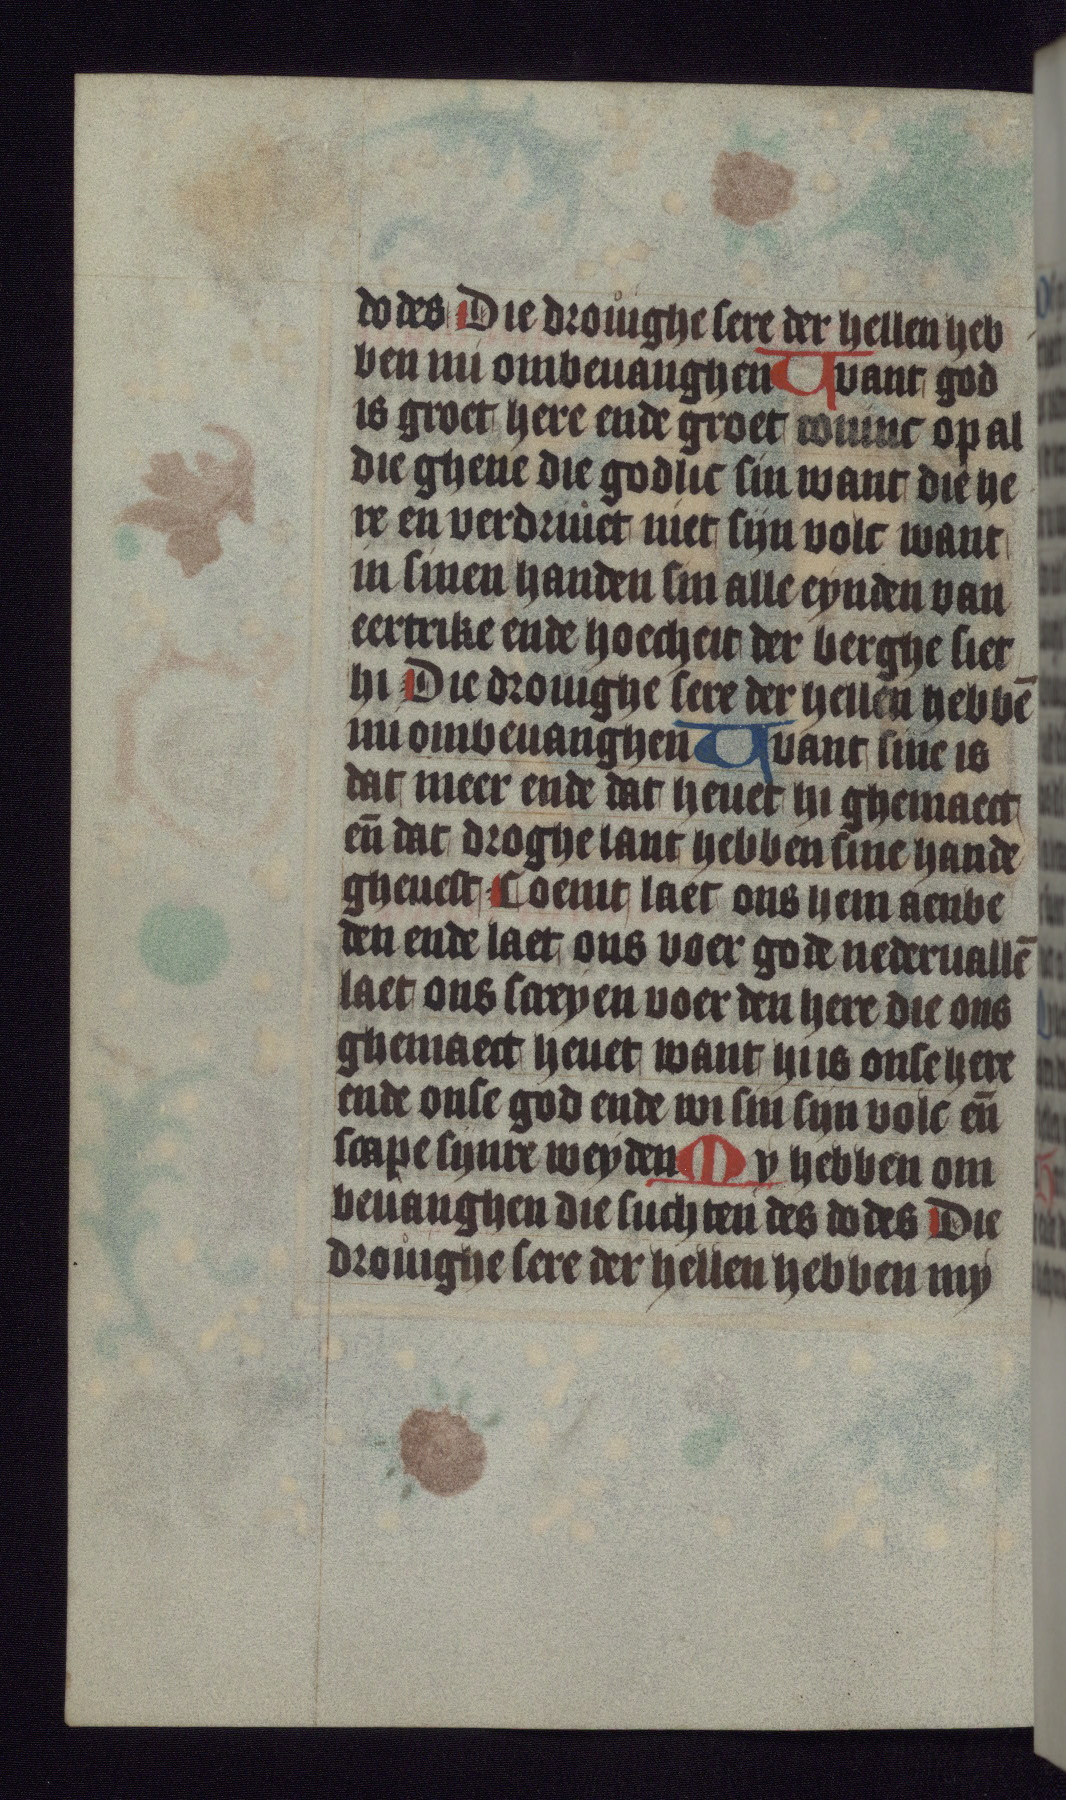 dodes Die drouighe sere der hellen heb
ben mi ombeuanghen Want god
is groet here ende groet coninc op al
die ghene die godlic sin want die he
re en verdriuet niet sijn volc want
in sinen handen sin alle eynden van
eertrike ende hoecheit der berghe siet
hi Die drouighe sere der hellen hebbē
mi ombeuanghen Want sine is
dat meer ende dat heuet hi ghemaect
eñ dat droghe lant hebben sine hande
gheuest Coemt laet ons hem aenbe
den ende laet ons voer gode nederuallē
laet ons screyen voer den here die ons
ghemaect heuet want hi is onse here
ende onse god ende wi sin sijn volc eñ
scape sijnre weyden My hebben om
beuanghen die suchten des dodes Die
drouighe sere der hellen hebben my